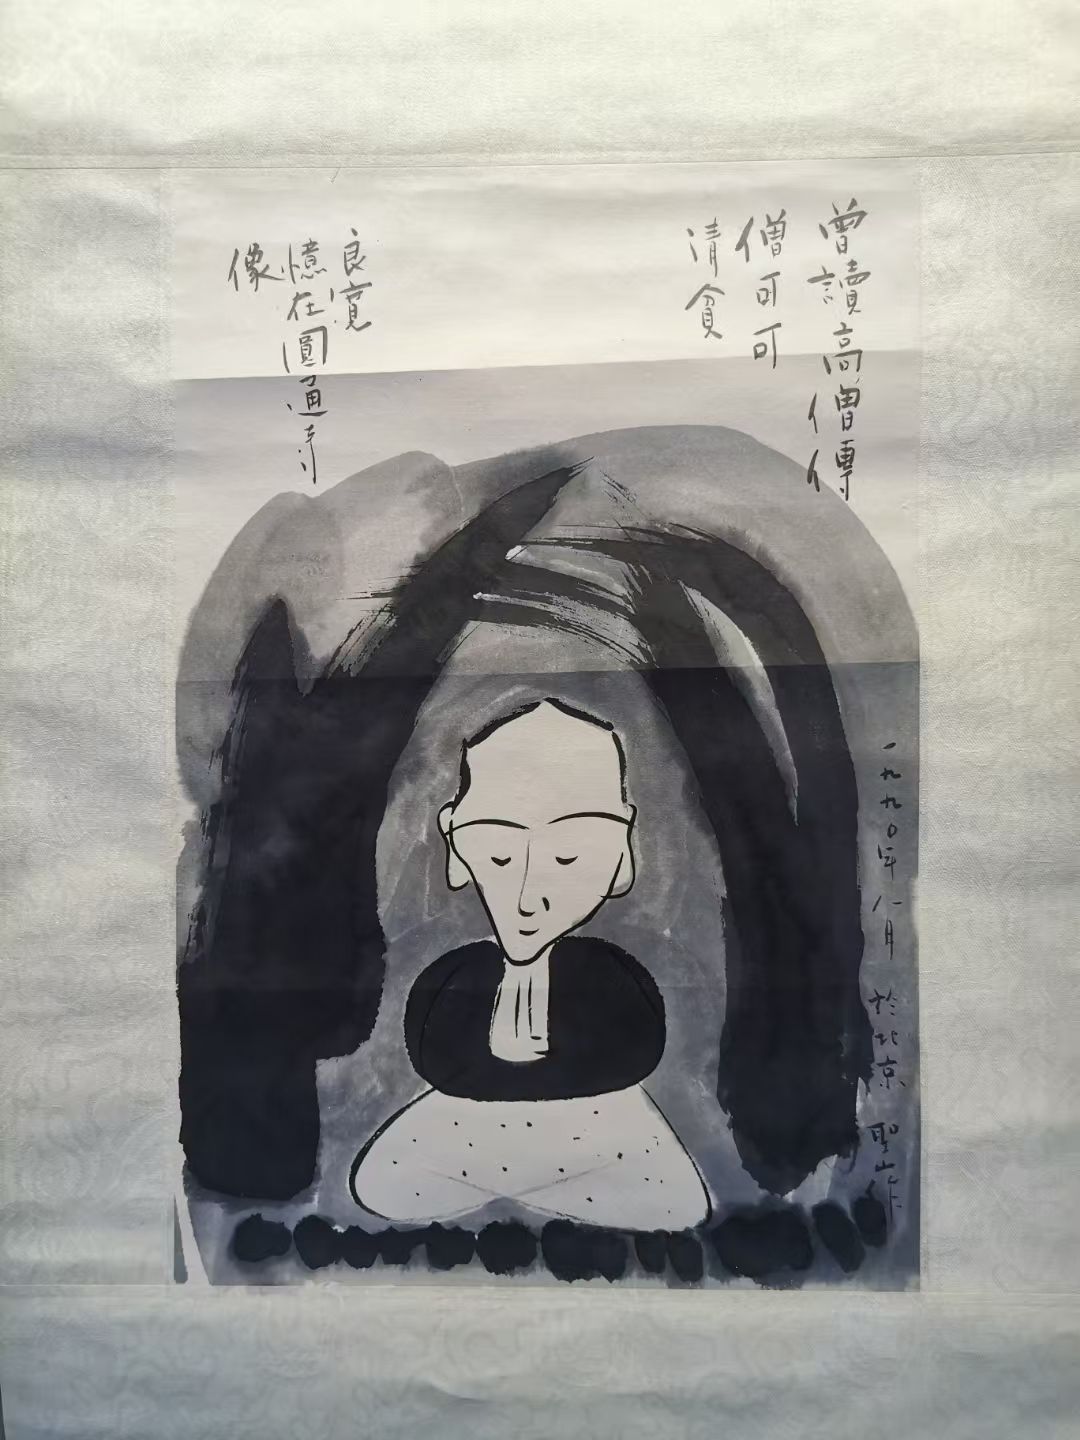 曾讀高僧傳
僧可可
清貧
良寬
憶在圓通寺
像
一九九〇年八月 於北京 聖山作